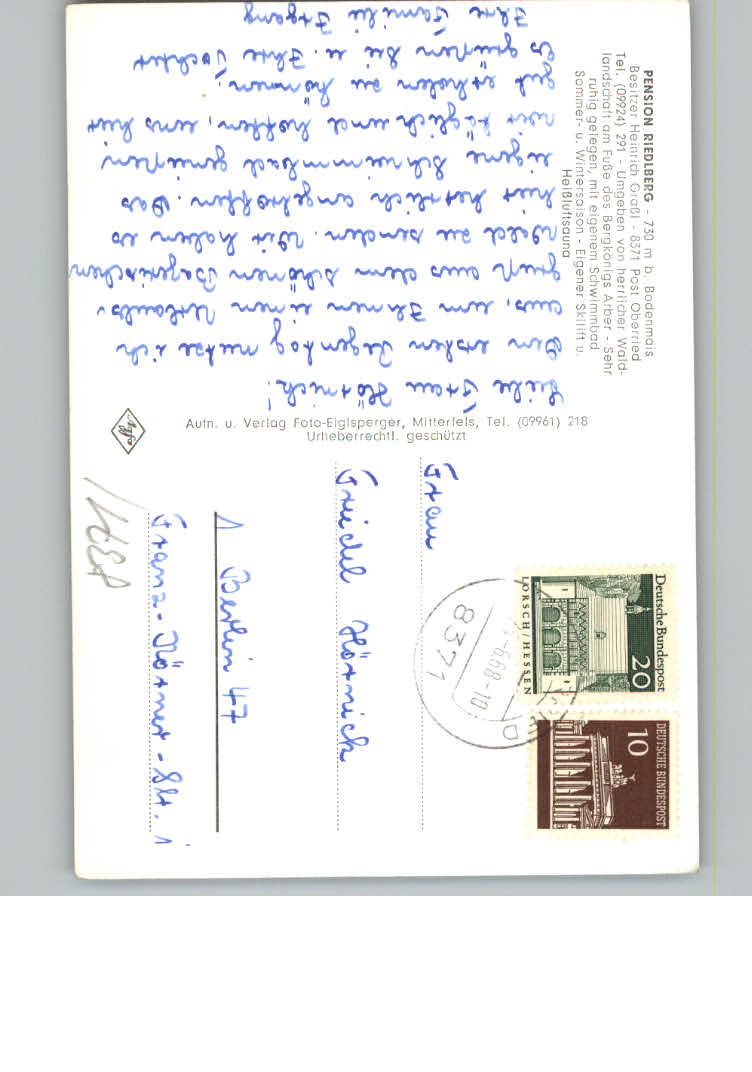 PENSION RIEDLBERG - 730 m b. Bodenmais
Besitzer Heinrich Graßl - 8371 Post Oberried
Tel. (09924) 291 - Umgeben von herrlicher Wald-
landschaft am Fuße des Bergkönigs Arber - Sehr
ruhig gelegen, mit eigenem Schwimmbad
Sommer- u. Wintersaison - Eigener Skilift u.
Heißluftsauna
Liebe Frau Hörnich!
Den ersten Regentag nutze ich
aus, um Ihnen einen Urlaubs-
gruß aus dem schönen Bayerischen
Wald zu senden. Wir haben es
hier herrlich angetroffen. Das
eigene Schwimmbad genießen
wir täglich und hoffen, uns hier
gut erholen zu können.
Es grüßen Sie u. Ihre Tochter
Ihre Familie Irgang
Aufn. u. Verlag Foto-Eiglsperger, Mitterfels, Tel. (09961) 218
Urheberrechtl. geschützt
Agfa
Deutsche Bundespost
20
LORSCH/HESSEN
DEUTSCHE BUNDESPOST
10
8371
-6.68-10
Frau
Friedel Hörnich
1 Berlin 47
Franz-Körner-Str. 1